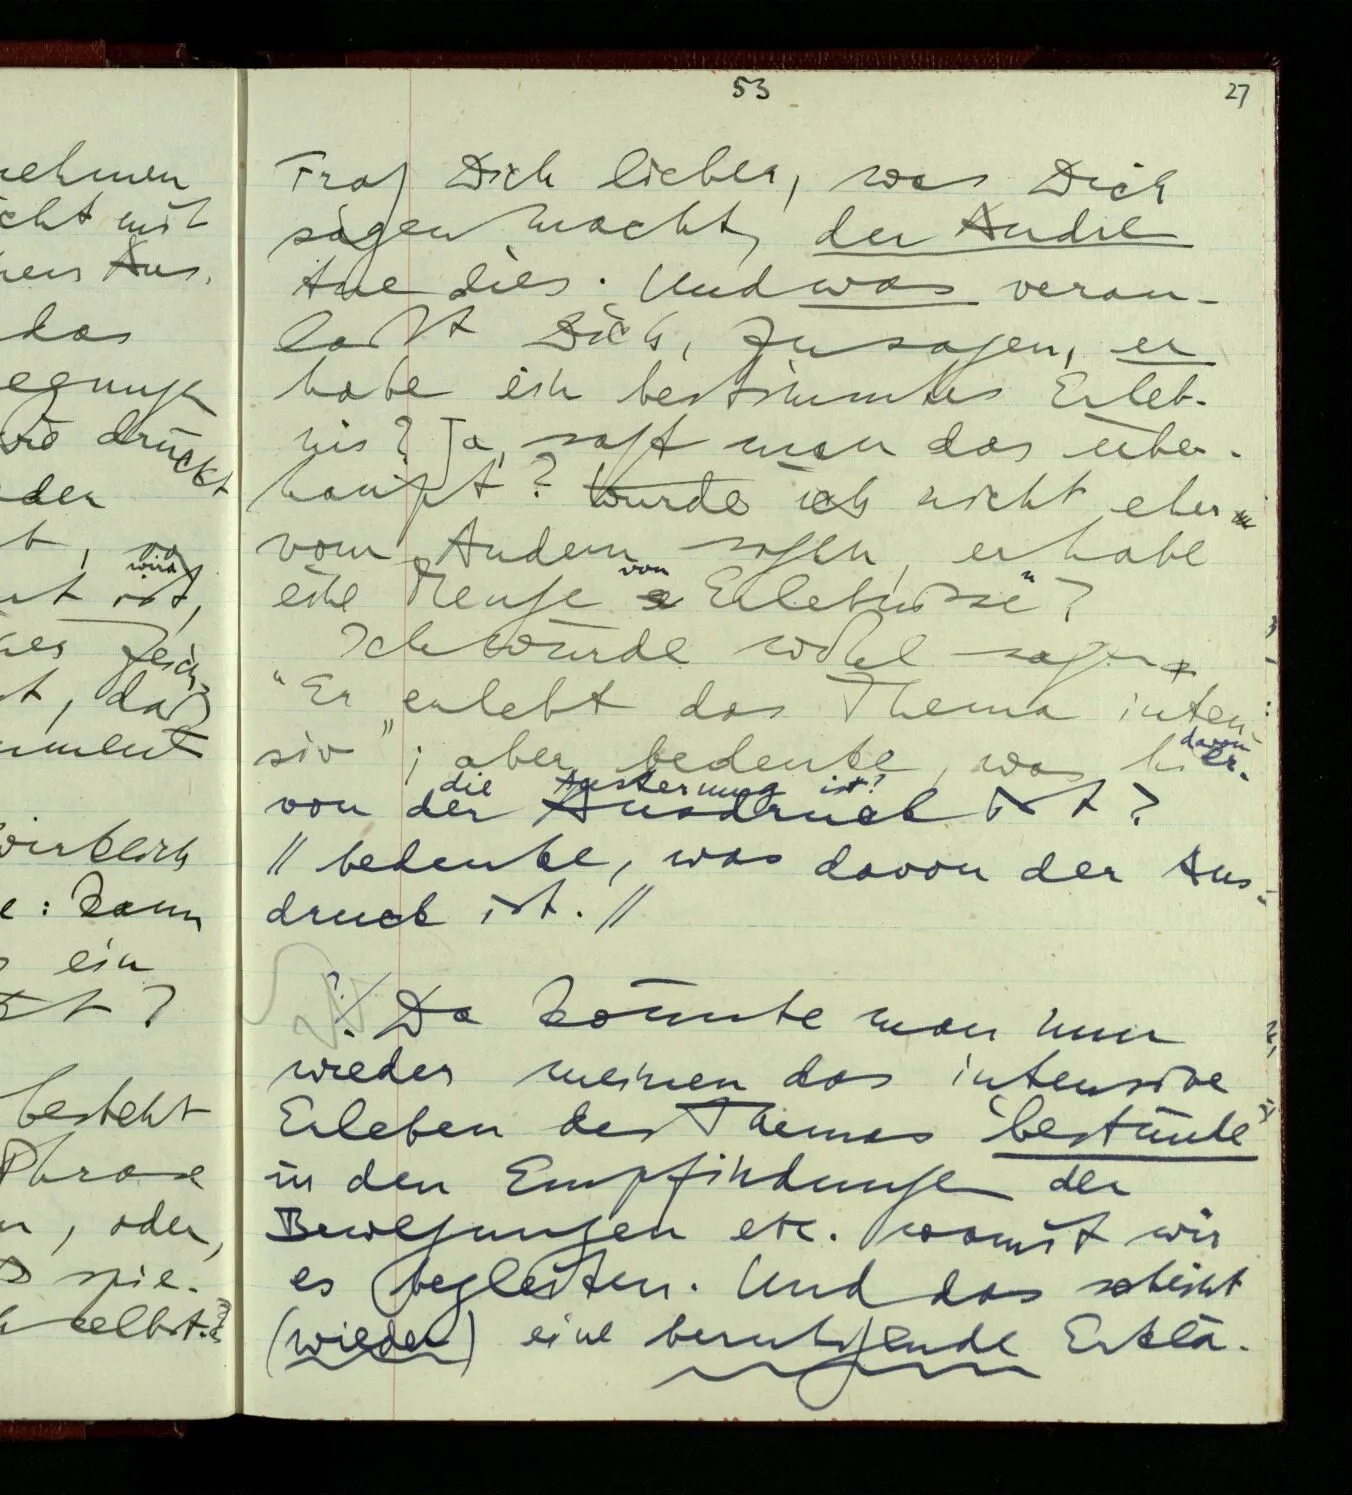 53
27
nehmen
cht mit
nen Aus-
das
egungen
wie drückt
der
t, so
wird
nt ist,
nes Zeich-
t, daß
nment
wirklich
e: kann
s ein
st?
besteht
Phrase
n, oder,
ß spie-
h selbst.?
Frag Dich lieber, was Dich
sagen macht, der Andre
tue dies. Und was veran-
laßt Dich, zu sagen, er
habe ein bestimmtes Erleb-
nis? Ja, sagt man das über-
haupt? Würde ich nicht eher
vom Andern sagen, er habe
von
eine Menge Erlebnisse"?
Ich würde wohl sagen,
"Er erlebt das Thema inten-
davon
siv"; aber bedenke, was hier-
die Äusserung ist?
von der Ausdruck ist?
// bedenke, was davon der Aus-
druck ist. //
?/ Da könnte man nun
wieder meinen das intensive
Erleben des Themas 'bestünde'
in den Empfindungen der
Bewegungen etc. womit wir
es begleiten. Und das scheint
(wieder) eine beruhigende Erklä-